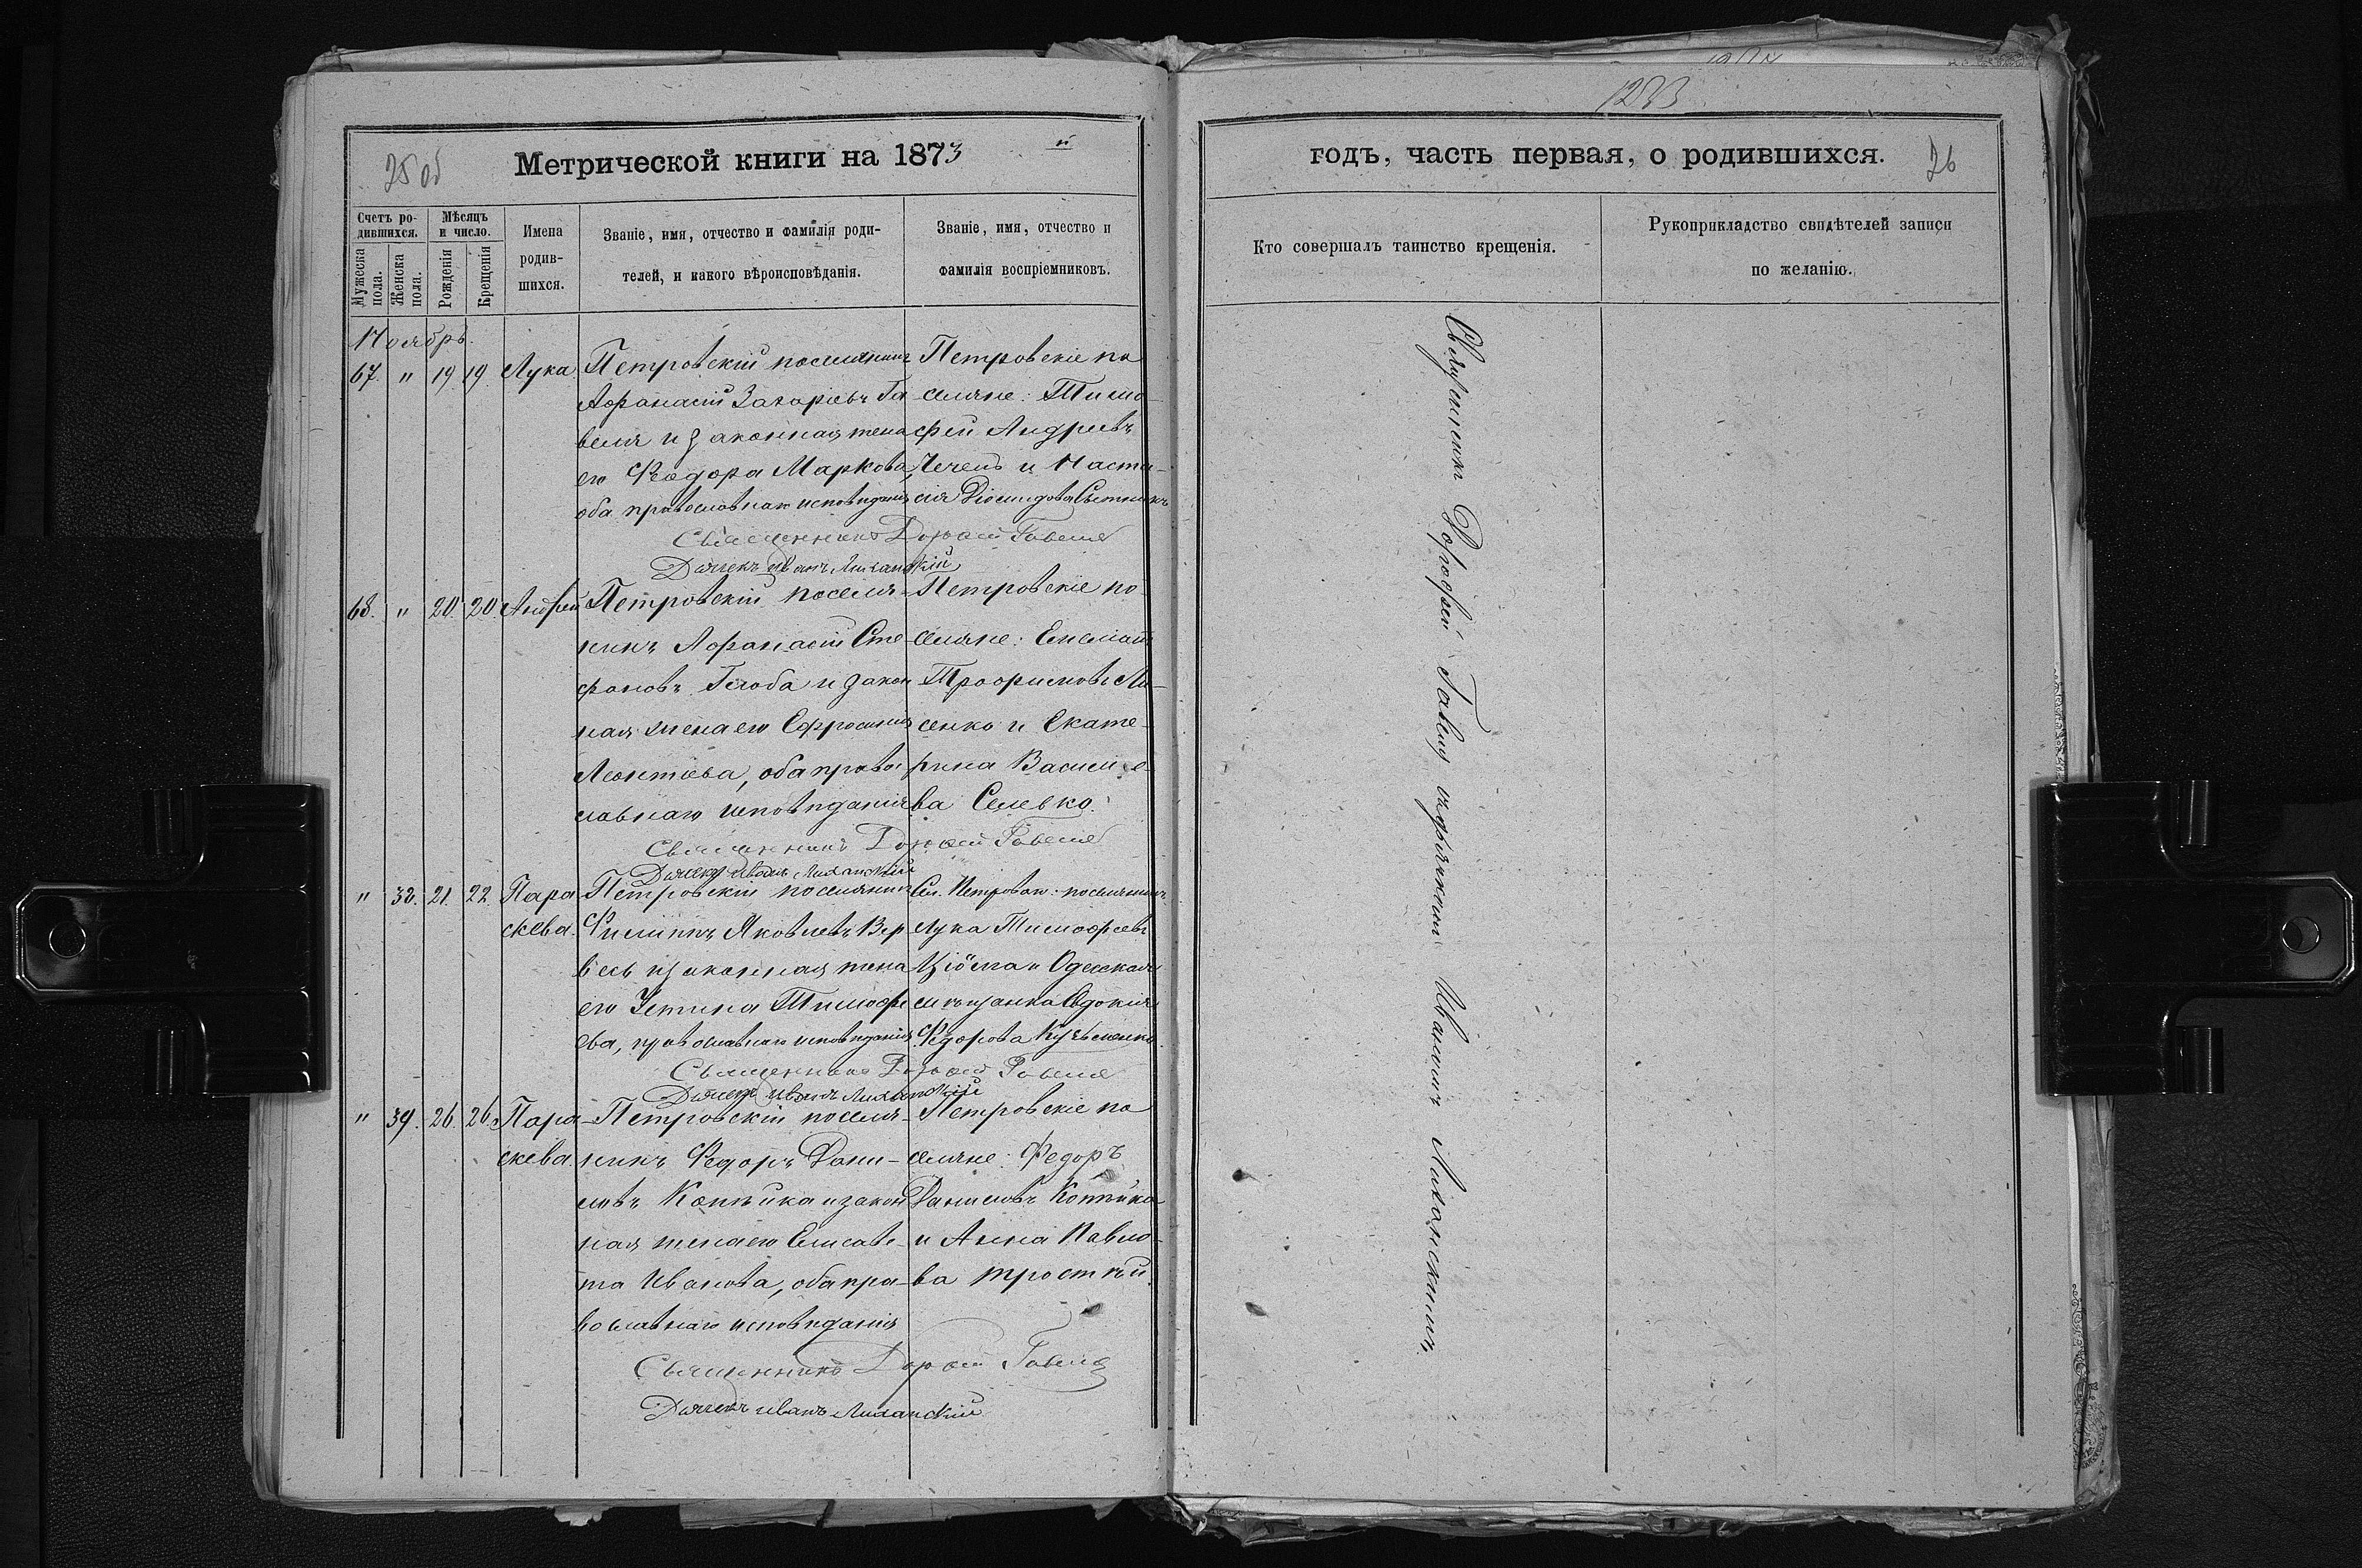 25 об
Метрической книги на 1873 й
Счетъ ро-
дившихся.
Мужеска пола.
Женска пола.
Мѣсяцъ
и число.
Рожденія
Крещенія
Имена
родив-
шихся.
Званіе, имя, отчество и фамилія роди-
телей, и какого вѣроисповѣданія.
Званіе, имя, отчество и
фамилія воспріемниковъ.
Ноябрь.
67. " 19 19 Лука
Петровскій поселянинъ
Афанасій Захаріевъ Га
веля и законная жена
его Ѳеодора Маркова,
оба православнаго исповѣданія
Петровскіе по
селяне: Тимо-
фей Андреевъ
Чечель и Наста-
сія Діомидова Сытникъ
Священникъ Дорофей Гавеля
Дьячекъ Иванъ Лиханскій
68. " 20. 20. Андрей
Петровскій поселя-
нинъ Афанасій Сте-
фановъ Глоба и закон
ная жена его Ефросинія
Леонтіева, оба право
славнаго исповѣданія
Петровскіе по
селяне:
Трофимовъ Ли-
сенко и Екате-
рина Василіе-
ва Селевко.
Священникъ Дорофей Гавеля
Дьячекъ Иванъ Лиханскій
" 38. 21. 22. Пара
скева.
Петровскій поселянинъ
Филипъ Яковлевъ Вер
весь и законная жена
его Устина Тимофе
ева, православнаго исповѣданія
Сел. Петровки: поселянинъ
Лука Тимофеевъ
и Одесская
мѣщанка Евдокія
Федорова Кузьменко.
Священникъ Дорофей Гавеля
Дьячекъ Иванъ Лиханскій
" 39. 26. 26. Пара-
скева.
Петровскій поселя-
нинъ Федоръ Дани-
ловъ Копѣйка и закон
ная жена его Елисаве-
та Иванова, оба пра-
вославнаго исповѣданія
Петровскіе по
селяне: Федоръ
Даниловъ Копѣйка
и Анна Павло-
ва
Священникъ Дорофей Гавеля
Дьячекъ Иванъ Лиханскій
1233
годъ, часть первая, о родившихся.
26
Кто совершалъ таинство крещенія.
Рукоприкладство свидѣтелей записи
по желанію.
Священникъ Дорофей Гавеля съ дьячкомъ Иваномъ Лиханскимъ.